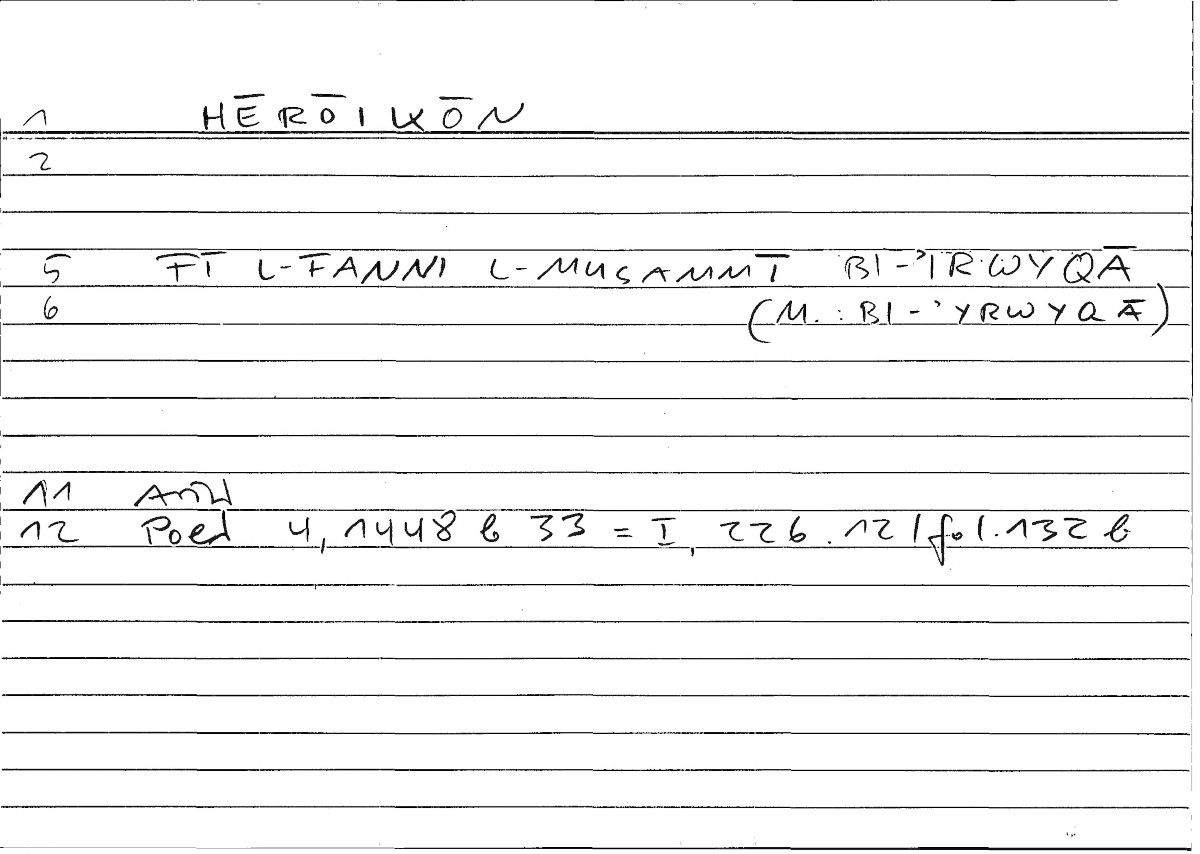 1 HĒRŌIKŌN
2
5 FĪ L-FANNI L-MUSAMMĪ BI-ʾIRWYQĀ
6 (M.: BI-ʾYRWYQĀ)
11 AnW
12 Poed 4, 1448 b 33 = I, 226.12 / fol. 132 b